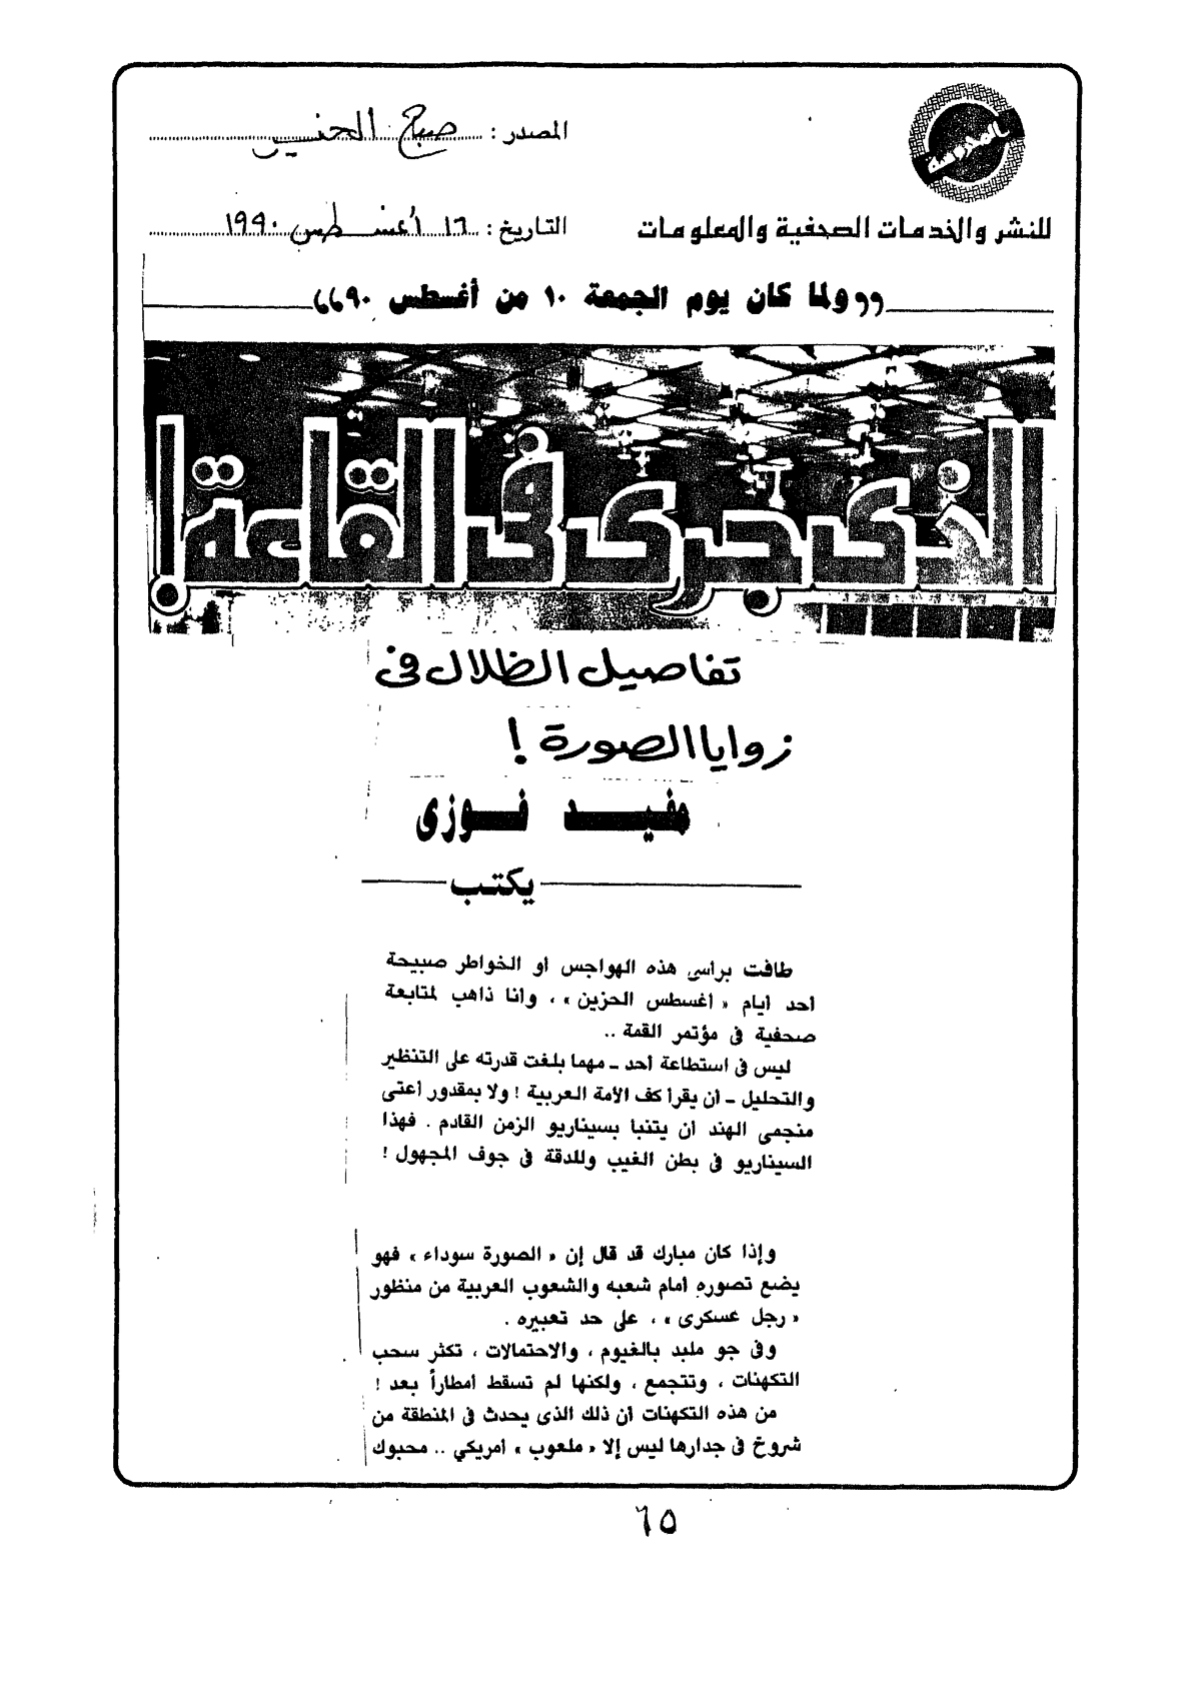 المصدر : صباح الخير
للنشر والخدمات الصحفية والمعلومات
التاريخ : ١٦ أغسطس ١٩٩٠
,, ولما كان يوم الجمعة ١٠ من أغسطس ٩٠ ،،
الذى جرى فى القاعة !
تفاصيل الظلال فى
زوايا الصورة !
مفيد فوزى
يكتب
طافت براسى هذه الهواجس او الخواطر صبيحة
احد ايام « اغسطس الحزين » ، وانا ذاهب لمتابعة
صحفية فى مؤتمر القمة ..
ليس فى استطاعة أحد ـ مهما بلغت قدرته على التنظير
والتحليل ـ أن يقرأ كف الأمة العربية ! ولا بمقدور أعتى
منجمى الهند ان يتنبا بسيناريو الزمن القادم . فهذا
السيناريو فى بطن الغيب وللدقة فى جوف المجهول !
وإذا كان مبارك قد قال إن « الصورة سوداء » فهو
يضع تصوره امام شعبه والشعوب العربية من منظور
« رجل عسكرى » ، على حد تعبيره .
وفى جو ملبد بالغيوم ، والاحتمالات ، تكثر سحب
التكهنات ، وتتجمع ، ولكنها لم تسقط امطاراً بعد !
من هذه التكهنات أن ذلك الذى يحدث فى المنطقة من
شروخ فى جدارها ليس إلا « ملعوب » امريكي .. محبوك
٦٥